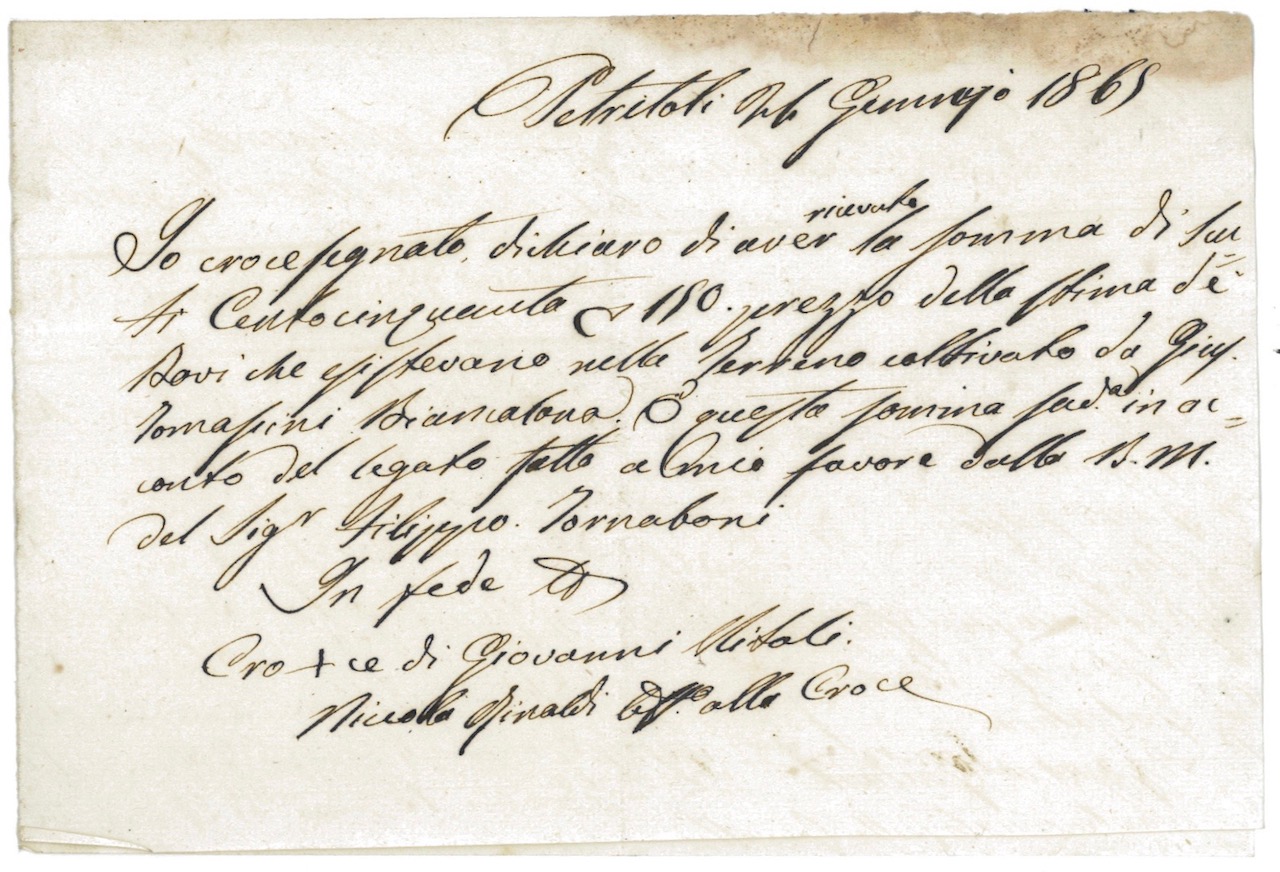 Petritoli 26 Gennajo 1865
Io crocesegnato, dichiaro di aver ricevuto la somma di Scu=
ti Centocinquanta 150. prezzo della stima dè
Bovi che esistevano nella Terreno coltivato da Gius.
Tomassini Biancatana. È questa somma sud.a in ac=
conto del legato fatto a mio favore dalla B. M.
del Sigr Filippo Tornaboni
In fede
Cro + ce di Giovanni Vitali.
Niccola Rinaldi alla Croce